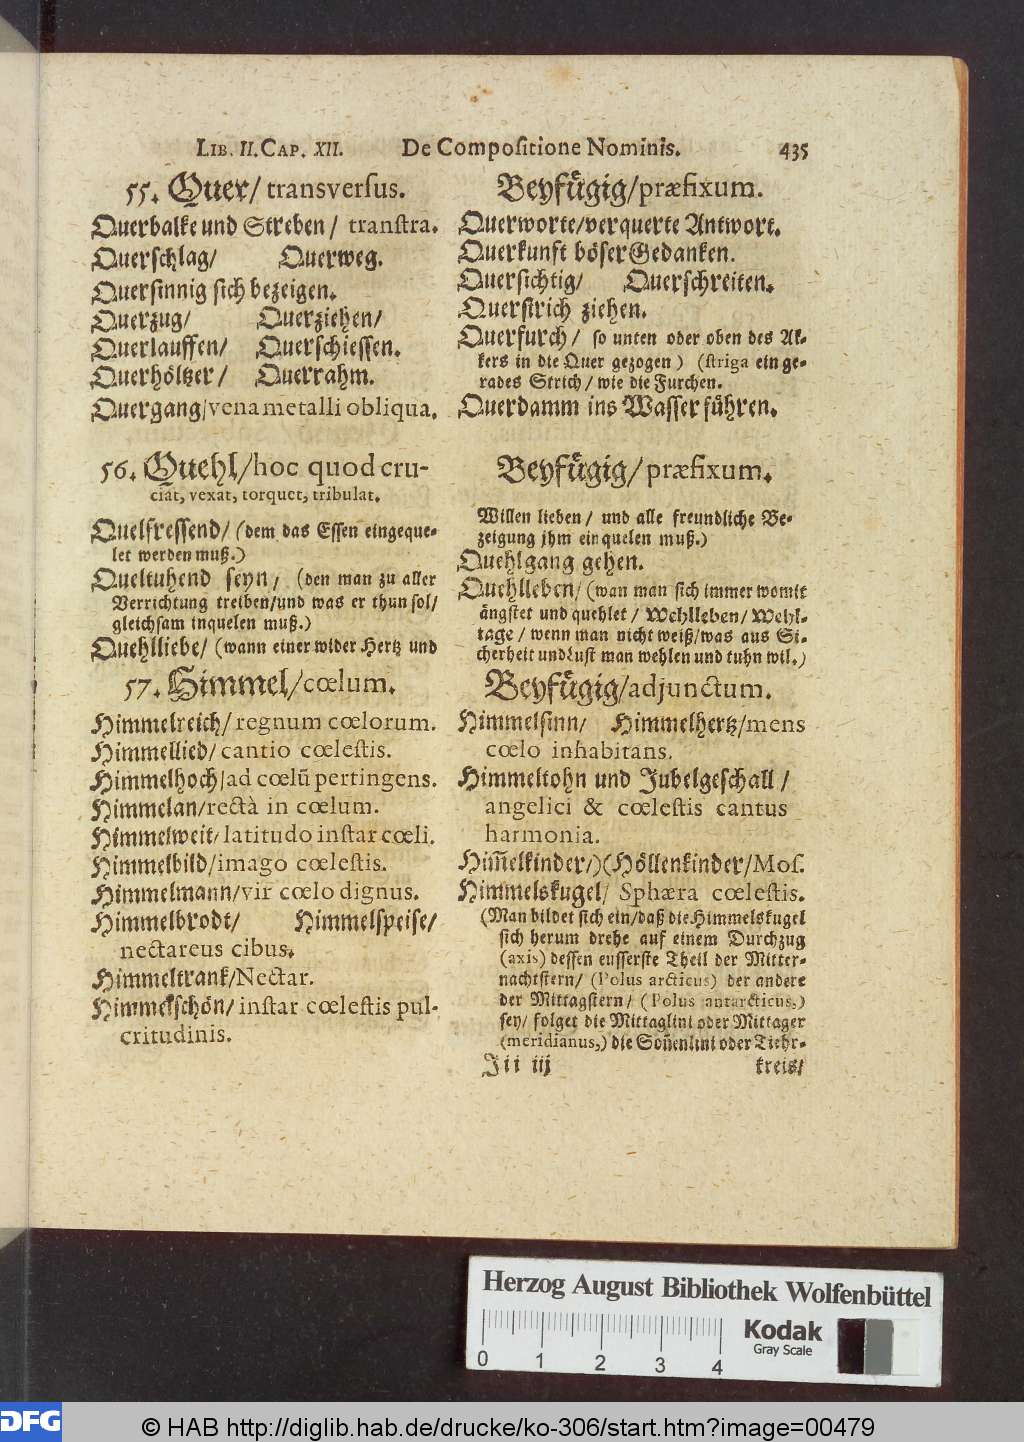 LIB. II. CAP. XII. De Compositione Nominis. 435
55. Quer/ transversus. Beyfügig/præfixum.
Querbalke und Streben/ transtra.
Querschlag/ Querweg.
Quersinnig sich bezeigen.
Querzug/ Querziehen/
Querlauffen/ Querschiessen.
Querhöltzer/ Querrahm.
Quergang/vena metalli obliqua.
Querworte/verquerte Antwort.
Querkunft böser Gedanken.
Quersichtig/ Querschreiten.
Querstrich ziehen.
Querfurch/ so unten oder oben des Ak-
kers in die Quer gezogen) (striga ein ge-
rades Strich/ wie die Furchen.
Querdamm ins Wasser führen.
56. Quehl/hoc quod cru- Beyfügig/præfixum.
ciat, vexat, torquet, tribulat.
Quelfressend/ (dem das Essen eingeque-
let werden muß.)
Queltuhend seyn/ (den man zu aller
Verrichtung treiben/und was er thun sol/
gleichsam inquelen muß.)
Quehlliebe/ (wann einer wider Hertz und
Willen lieben/ und alle freundliche Be-
zeigung jhm einquelen muß.)
Quehlgang gehen.
Quehlleben/ (wan man sich immer womit
ängstet und quehlet/ Wehlleben/ Wehl-
tage/ wenn man nicht weiß/was aus Si-
cherheit und Lust man wehlen und tuhn wil.)
57. Himmel/cœlum. Beyfügig/adjunctum.
Himmelreich/ regnum cœlorum.
Himmellied/ cantio cœlestis.
Himmelhoch/ad cœlũ pertingens.
Himmelan/rectà in cœlum.
Himmelweit/ latitudo instar cœli.
Himmelbild/imago cœlestis.
Himmelmann/vir cœlo dignus.
Himmelbrodt/ Himmelspeise/
nectareus cibus.
Himmeltrank/Nectar.
Himmelschön/ instar cœlestis pul-
critudinis.
Himmelsinn/ Himmelhertz/mens
cœlo inhabitans.
Himmeltohn und Jubelgeschall/
angelici & cœlestis cantus
harmonia.
Him̃elkinder/)(Höllenkinder/Mos.
Himmelskugel/ Sphæra cœlestis.
(Man bildet sich ein/daß die Himmelskugel
sich herum drehe auf einem Durchzug
(axis) dessen eusserste Theil der Mitter-
nachtstern/ (Polus arcticus) der andere
der Mittagstern/ (Polus antarcticus,)
sey/ folget die Mittaglini oder Mittager
(meridianus,) die Soñenlini oder Tiehr-
Iii iij kreis/
Herzog August Bibliothek Wolfenbüttel
Kodak
Gray Scale
0 1 2 3 4
DFG © HAB http://diglib.hab.de/drucke/ko-306/start.htm?image=00479